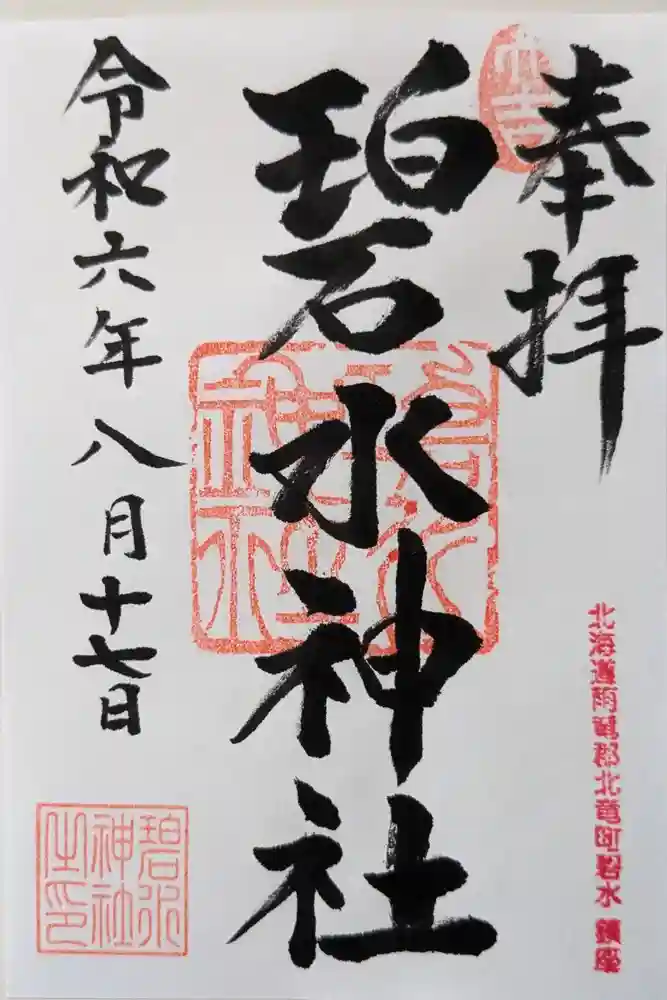 奉拝
碧水神社
令和六年八月十七日
北海道雨竜郡北竜町碧水 鎮座
碧水神社之印